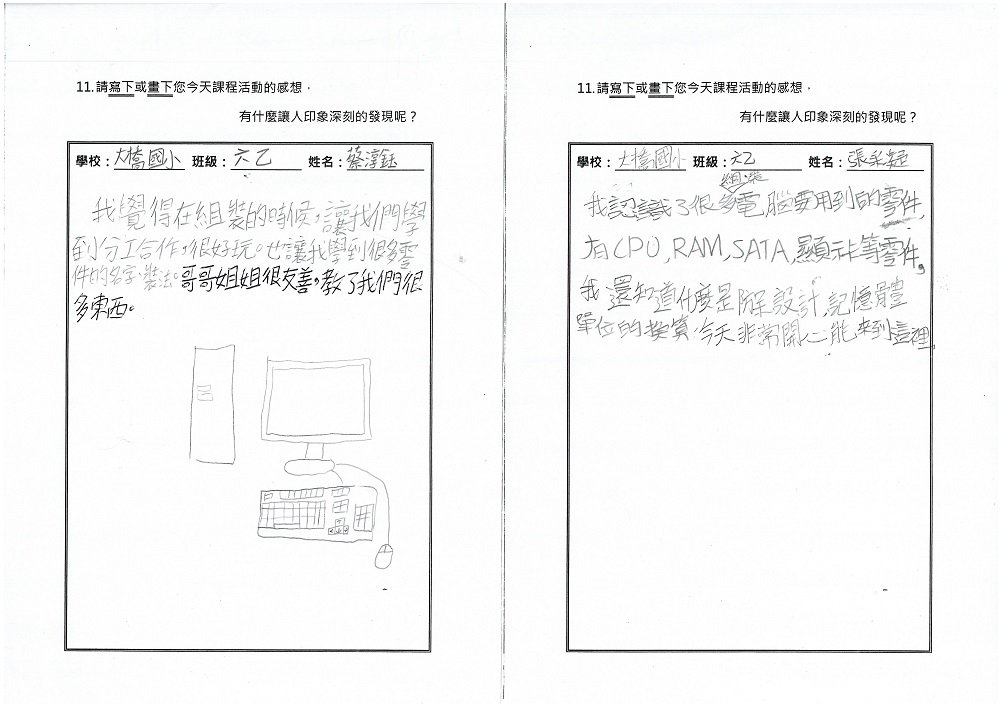 11.請寫下或畫下您今天課程活動的感想，
有什麼讓人印象深刻的發現呢？
學校：大橋國小 班級：六乙 姓名：蔡淳鈺
我覺得在組裝的時候，讓我們學
到分工合作，很好玩。也讓我學到很多零
件的名字、裝法。哥哥姐姐很友善，教了我們很
多東西。
11.請寫下或畫下您今天課程活動的感想，
有什麼讓人印象深刻的發現呢？
學校：大橋國小 班級：六乙 姓名：張采
組裝
我認識了很多電腦要用到的零件，
有CPU,RAM,SATA,顯示卡等零件。
我還知道什麼是防呆設計,記憶體
單位的換算,今天非常開心能來到這裡。